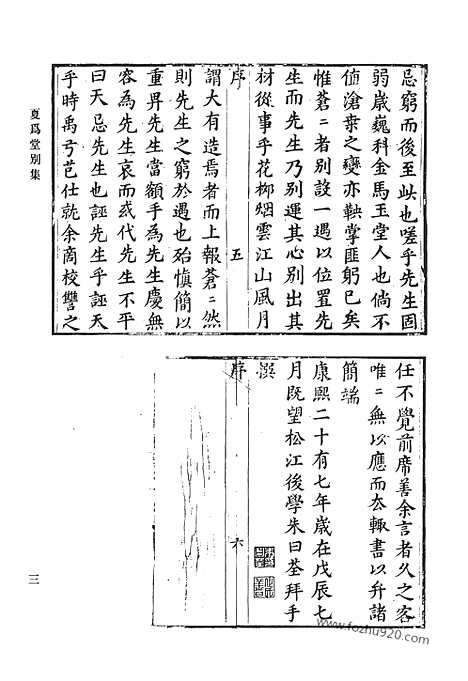 忌窮而後至此也嗟乎先生固
弱歲巍科金馬玉堂人也倘不
值滄桒之變亦鞅掌匪躬已矣
惟蒼〻者別設一遇以位置先
生而先生乃別運其心別出其
材從事乎花柳烟雲江山風月
序
五
謂大有造焉者而上報蒼〻然
則先生之窮於遇也殆慎簡以
重畀先生當額手為先生慶無
容為先生哀而或代先生不平
曰天忌先生也誣先生乎誣天
乎時禹兮芑仕訛余商校讐之
夏爲堂別集
任不覺前席善余言者久之客
唯〻無以應而去輒書以弁諸
簡端
康熙二十有七年歲在戊辰七
月既望松江後學朱曰荃拜手
撰
序
六
三
www.fozhu920.com